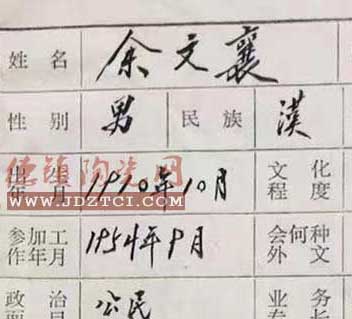 姓名 余文襄
性别 男 民族 汉
出生年月 1910年10月 文化程度
德镇陶瓷网
WWW.JDZTCI.COM
参加工作年月 1954年9月 会何种外文
政治面目 公民 业务专长